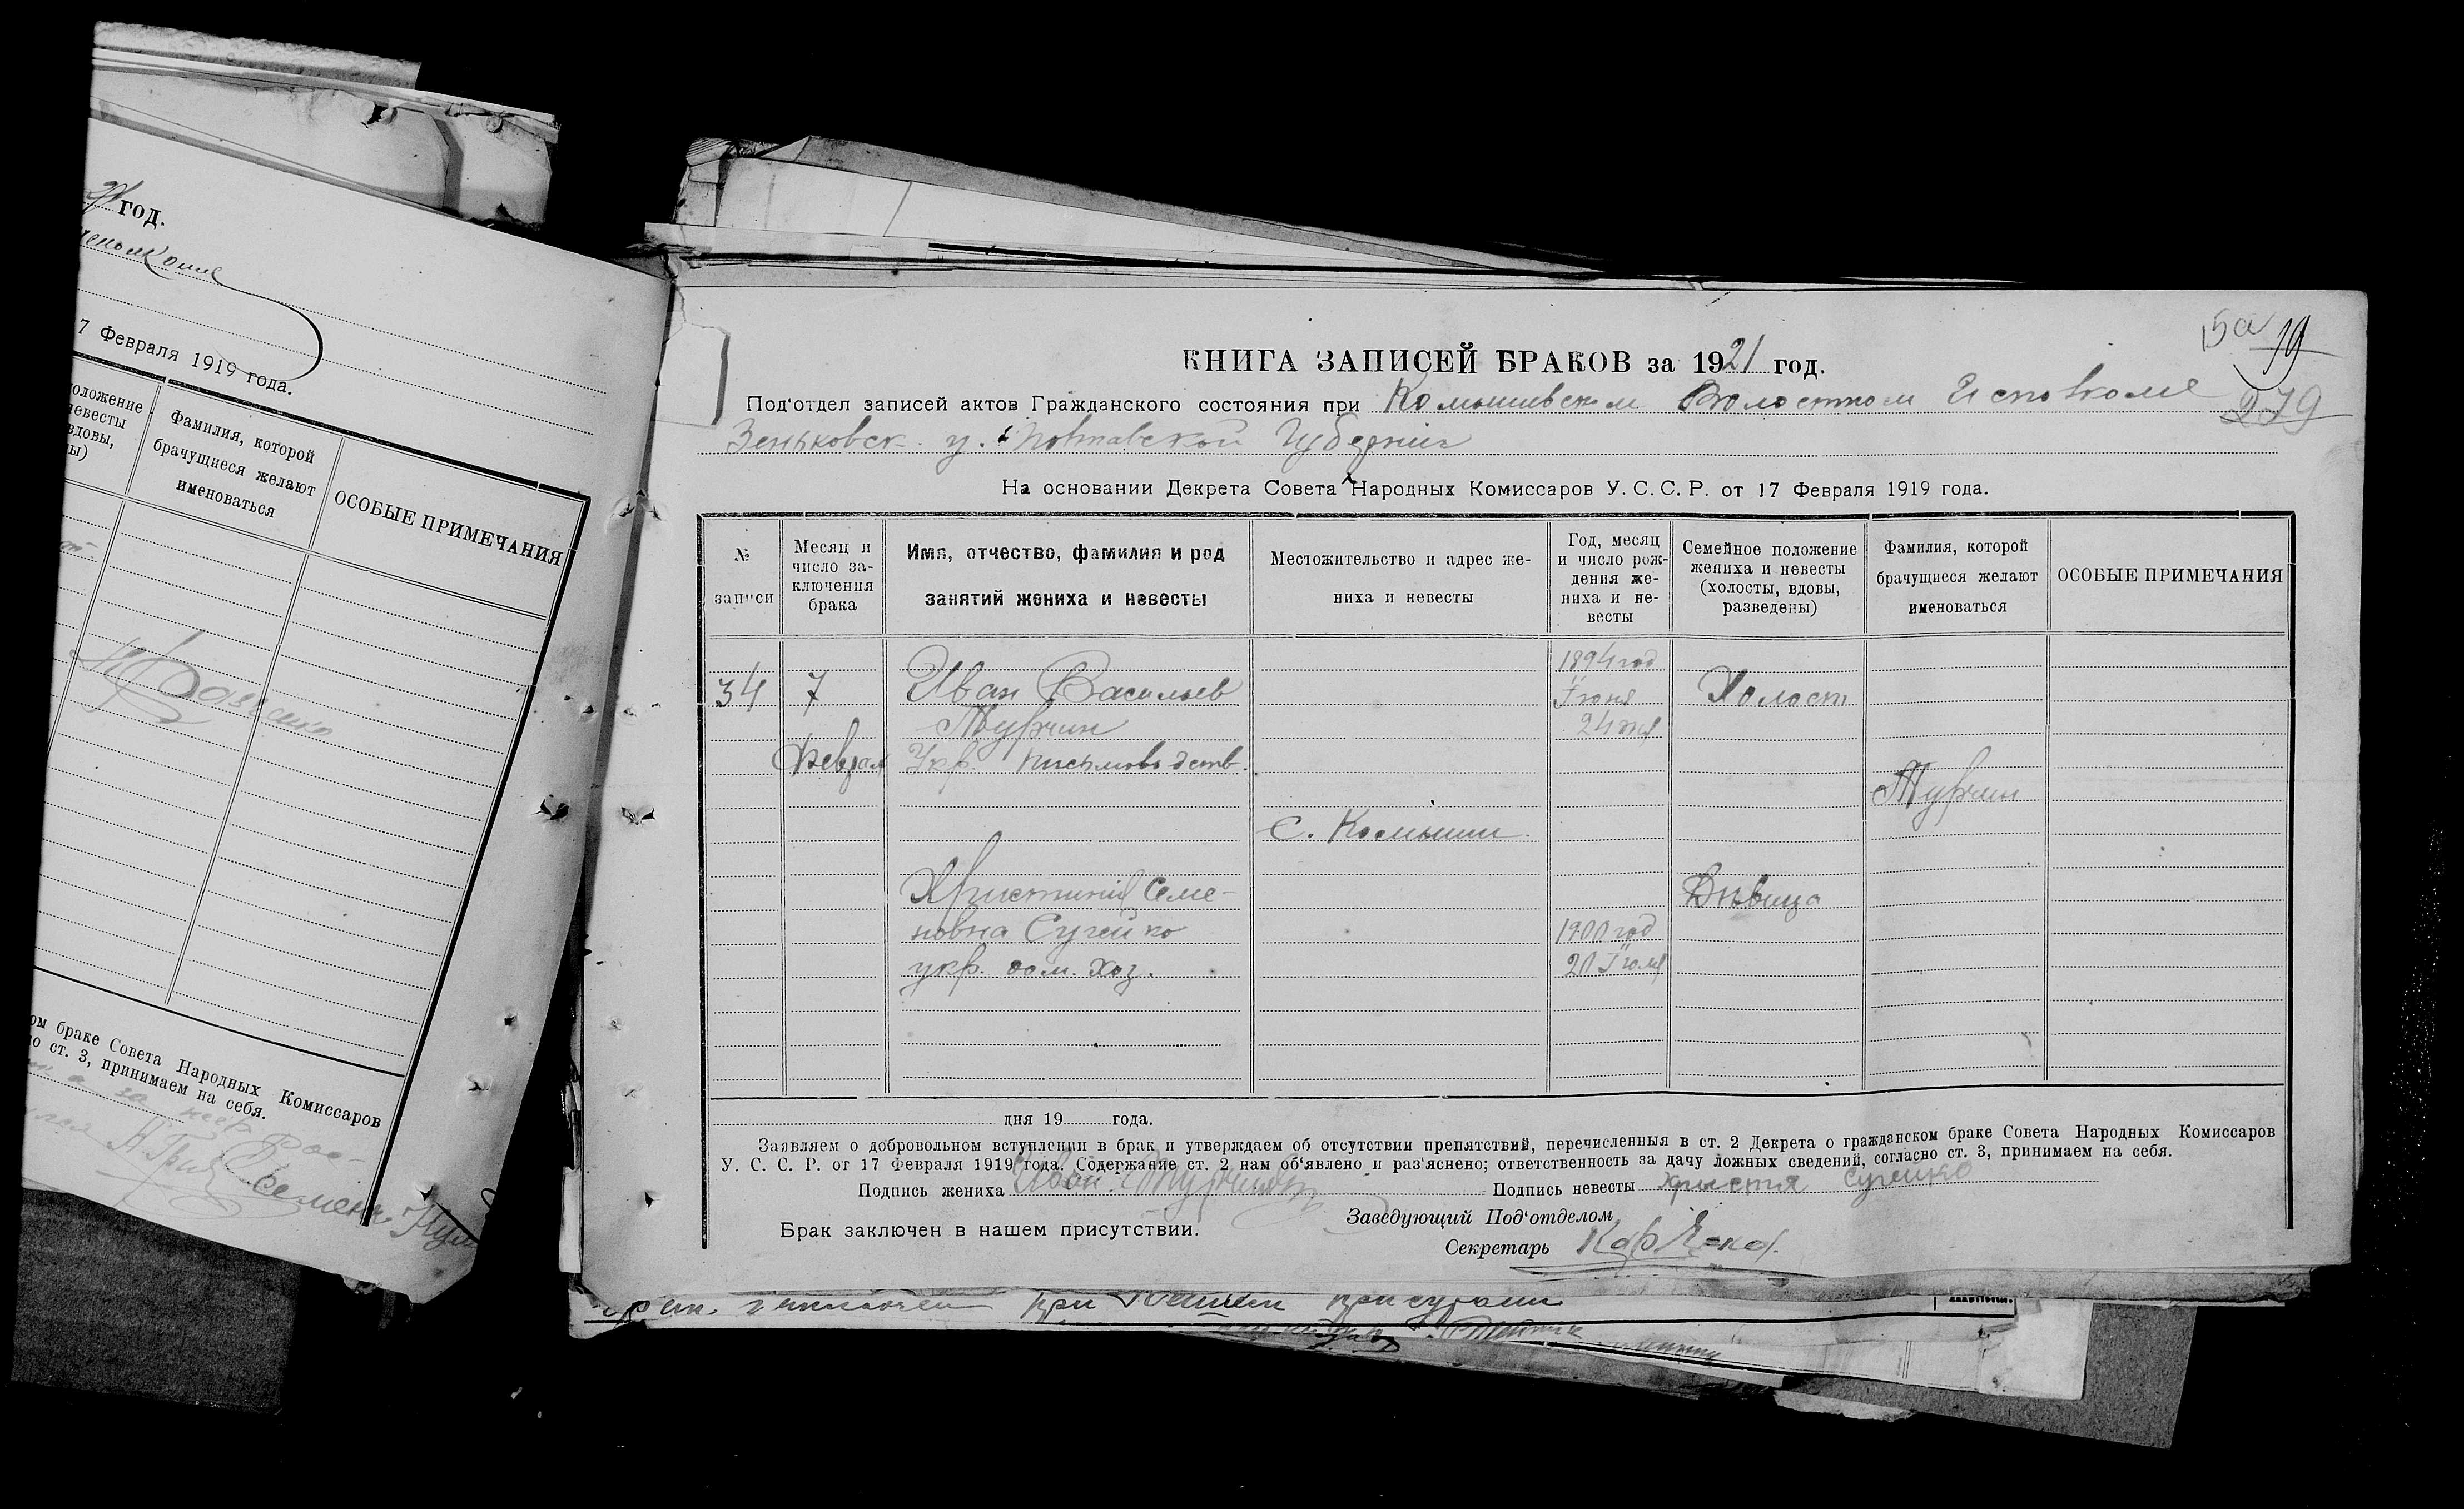 год.
7 Февраля 1919 года.
оложение
невесты
вдовы,
ы)
Фамилия, которой
брачущиеся желают
именоваться
ОСОБЫЕ ПРИМЕЧАНИЯ
ом браке Совета Народных Комиссаров
о ст. 3, принимаем на себя.
15а 19
279
КНИГА ЗАПИСЕЙ БРАКОВ за 1921 год.
Под‘отдел записей актов Гражданского состояния при Комышевском Волостном Исповкоме
Зеньковск. у. Полтавской Губернии
На основании Декрета Совета Народных Комиссаров У. С. С. Р. от 17 Февраля 1919 года.
№
записи
Месяц и
число за-
ключения
брака
Имя, отчество, фамилия и род
занятий жениха и невесты
Местожительство и адрес же-
ниха и невесты
Год, месяц
и число рож-
дения же-
ниха и не-
весты
Семейное положение
жениха и невесты
(холосты, вдовы,
разведены)
Фамилия, которой
брачущиеся желают
именоваться
ОСОБЫЕ ПРИМЕЧАНИЯ
34
7
Феврал
Иван Васильев
Турчин
Укр. письмоводств.
1894 год
Июня
24 дня
Холост
Турчин
С. Комыши.
Христиния Семе-
новна Сугейко
укр. дом. хоз.
1900 год
20 Июля
Дѣвица
дня 19 года.
Заявляем о добровольном вступлении в брак и утверждаем об отсутствии препятствий, перечисленныя в ст. 2 Декрета о гражданском браке Совета Народных Комиссаров
У. С. С. Р. от 17 Февраля 1919 года. Содержание ст. 2 нам об‘явлено и раз‘яснено; ответственность за дачу ложных сведений, согласно ст. 3, принимаем на себя.
Подпись жениха Иван Турчин
Подпись невесты Христия Сугейко
Брак заключен в нашем присутствии.
Заведующий Под‘отделом
Секретарь